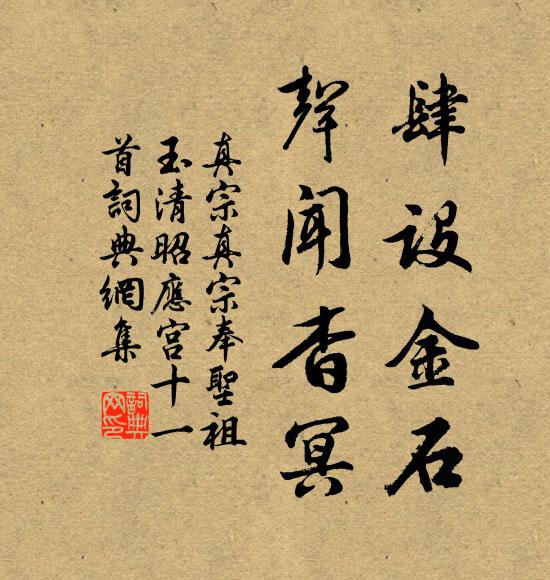 肆設金石
聲聞杳冥
真宗真宗奉聖祖
玉清昭應宮十一
首詞典網集
詞典
网印